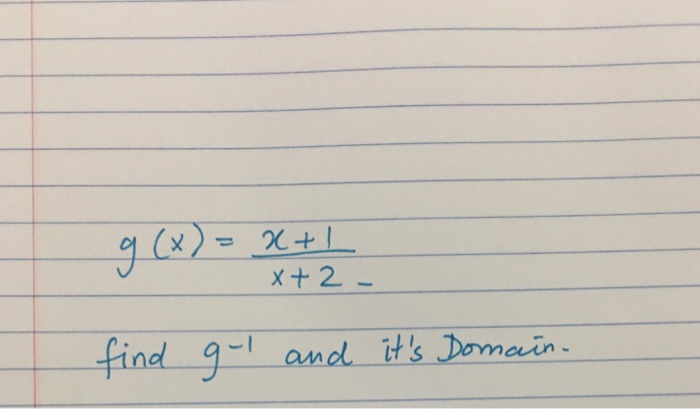 g(x) = x+1
x+2 -
find g⁻¹ and it's Domain.